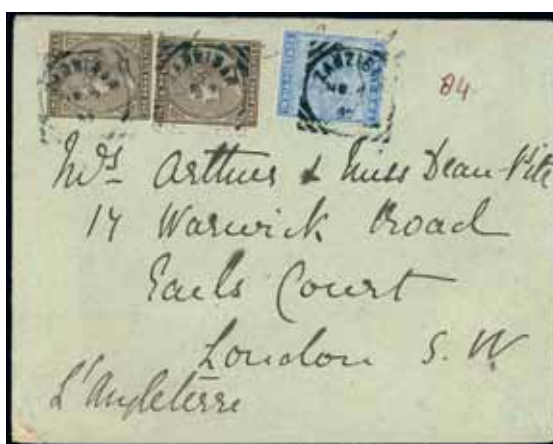 ZANZIBAR
84
Mrs Arthur & Miss Dean-Pitt
17 Warwick Road
Earls Court
London S.W
L'Angleterre